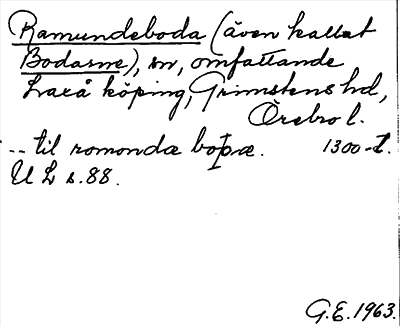 Ramundeboda (även kallat
Bodarne), sn, omfattande
Laxå köping, Grimstens hd,
Örebro l.
-- til romondæ boþæ. 1300-t.
U L s.88.
G.E. 1963.